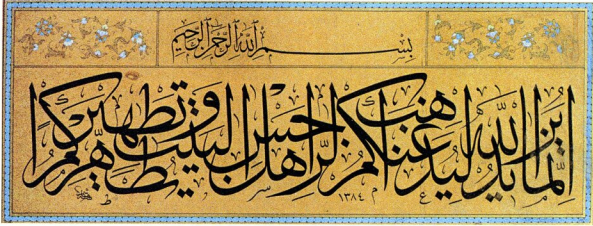 بسم الله الرحمن الرحيم
إنما يريد الله ليذهب عنكم الرجس أهل البيت ويطهركم تطهيرا
١٣٨٤